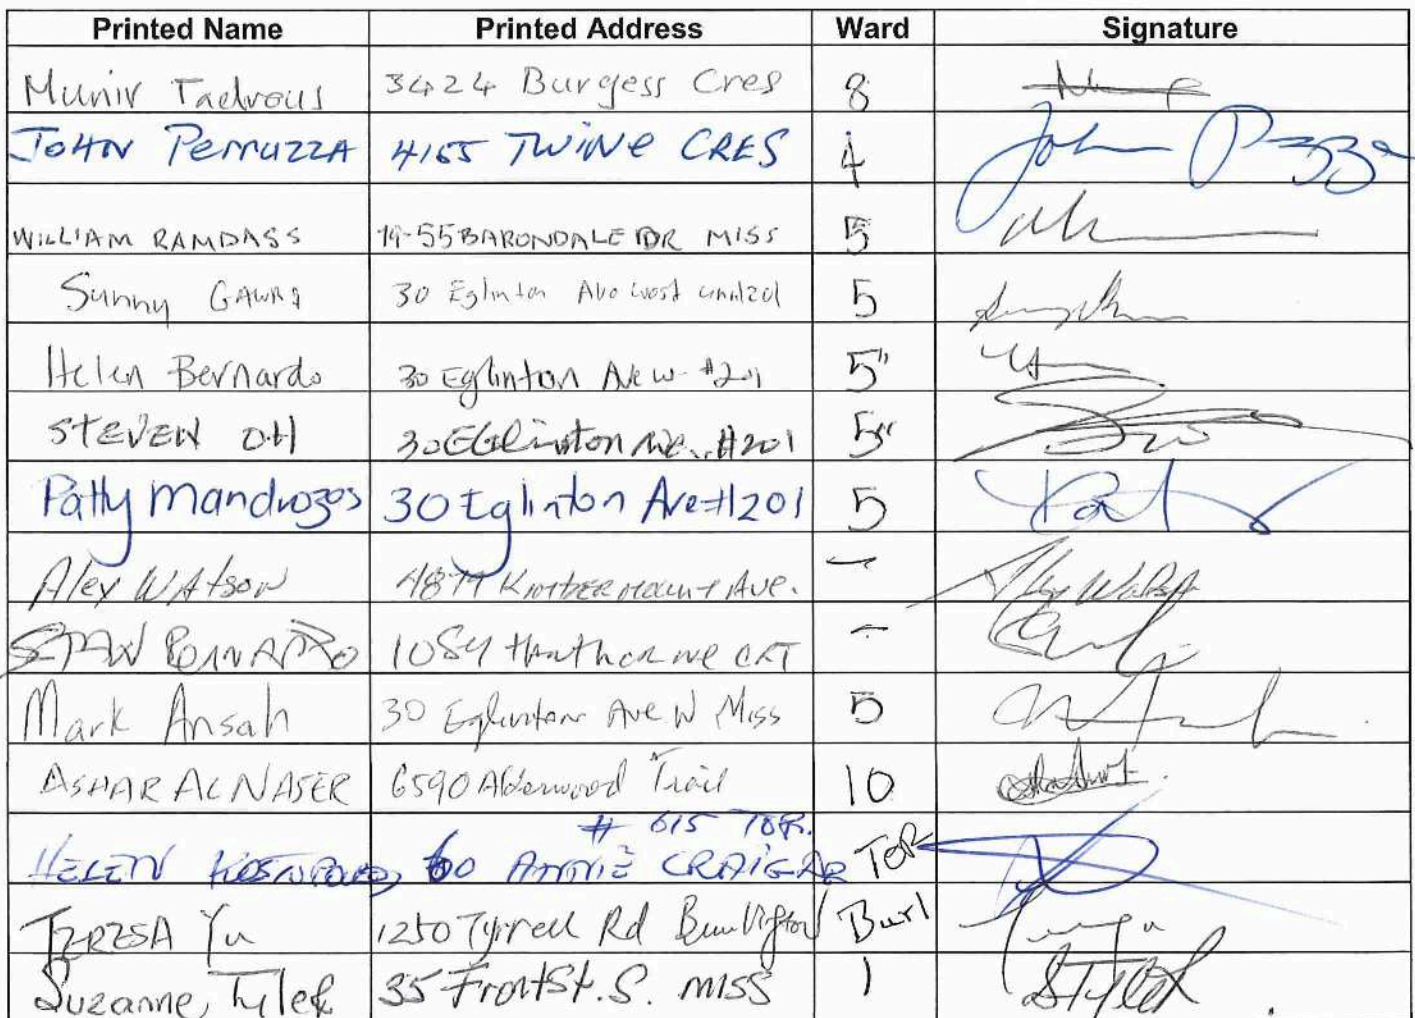 Printed Name Printed Address Ward Signature
Munir Tadrous 3424 Burgess Cres 8
JOHN PERRUZZA 4155 TWINE CRES 4 John
WILLIAM RAMDASS 19-55 BARONDALE DR MISS 5
Sunny GAWRI 30 Eglinton Ave west unit 201 5
Helen Bernardo 30 Eglinton Ave W #201 5"
STEVEN OH 30 EGlinton Ave. #201 5"
Patty Mandrozos 30 Eglinton Ave #1201 5
Alex WAtson Ave. - Alex Watson
1084 Hawthorne CRT -
Mark Ansah 30 Eglinton Ave W Miss 5
ASHAR ALNASER 6590 Alderwood Trail 10
# 615 TOR.
HELEN ANNIE CRAIG DR TOR
TERESA Yu 1250 Tyrrell Rd Burlington Burl
Suzanne Tyler 35 Front St. S. miss 1 STyler